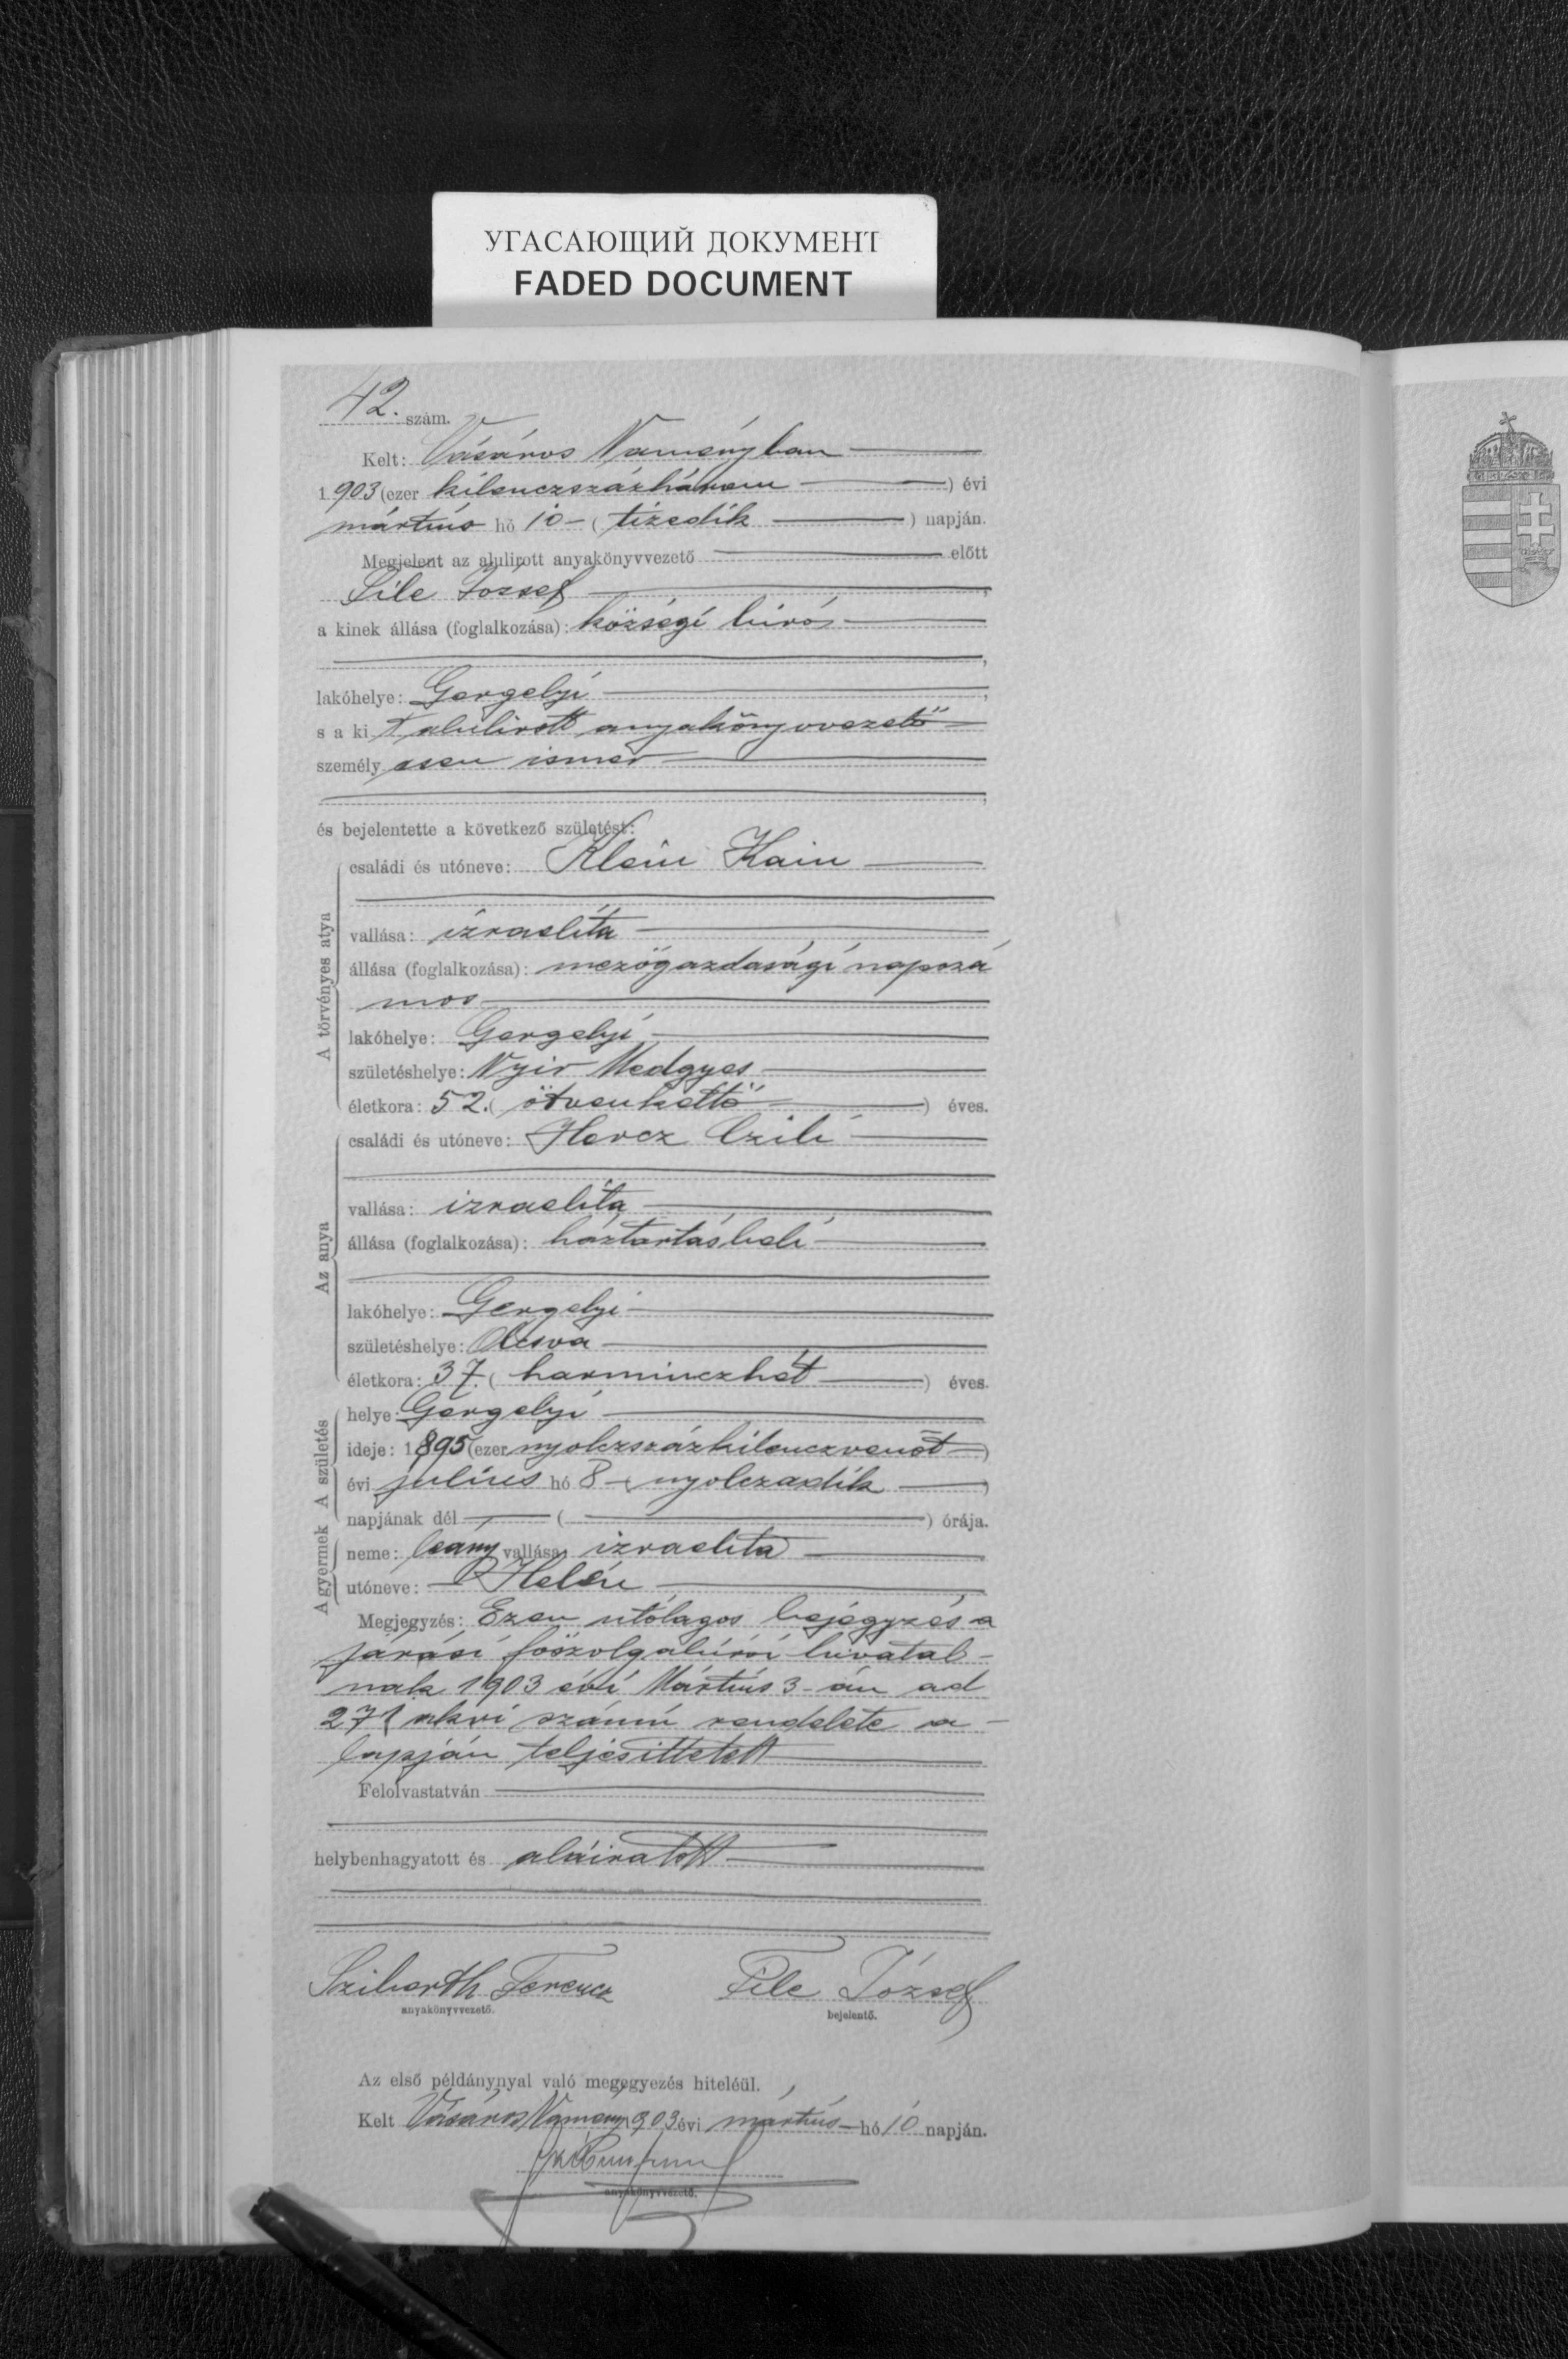 УГАСАЮЩИЙ ДОКУМЕНТ
FADED DOCUMENT
42. szám.
Kelt: Vásáros Naményban
1903 (ezer kilenczszázhárom ) évi
mártius hó 10 - ( tizedik ) napján.
Megjelent az alulirott anyakönyvvezető előtt
File József
a kinek állása (foglalkozása): községi biró
lakóhelye: Gergelyi
s a ki t alulirott anyakönyvvezető
személy esen ismer
és bejelentette a következő születést:
A törvényes atya
családi és utóneve: Klein Haim
vallása: izraelita
állása (foglalkozása): mezőgazdasági napszá
mos
lakóhelye: Gergelyi
születéshelye: Nyir Medgyes
életkora: 52. ( ötvenkettő ) éves.
Az anya
családi és utóneve: Hercz Czili
vallása: izraelita
állása (foglalkozása): háztartásbeli
lakóhelye: Gergelyi
születéshelye: Olcsva
életkora: 37. ( harminczhét ) éves.
A születés
helye: Gergelyi
ideje: 1895 (ezer nyolczszázkilenczvenöt )
évi julius hó 8 - ( nyolczadik )
napjának dél ( ) órája.
A gyermek
neme: leány vallása: izraelita
utóneve: Helén
Megjegyzés: Ezen utólagos bejegyzés a
járási főszolgabirói hivatal-
nak 1903 évi Mártius 3-án ad
271 akvi számú rendelete a-
lapján teljesittetett
Felolvastatván
helybenhagyatott és aláiratott
Ferencz File József
anyakönyvvezető. bejelentő.
Az első példánynyal való megegyezés hiteléül.
Kelt Vásáros Namény 1903 évi mártius hó 10 napján.
anyakönyvvezető.